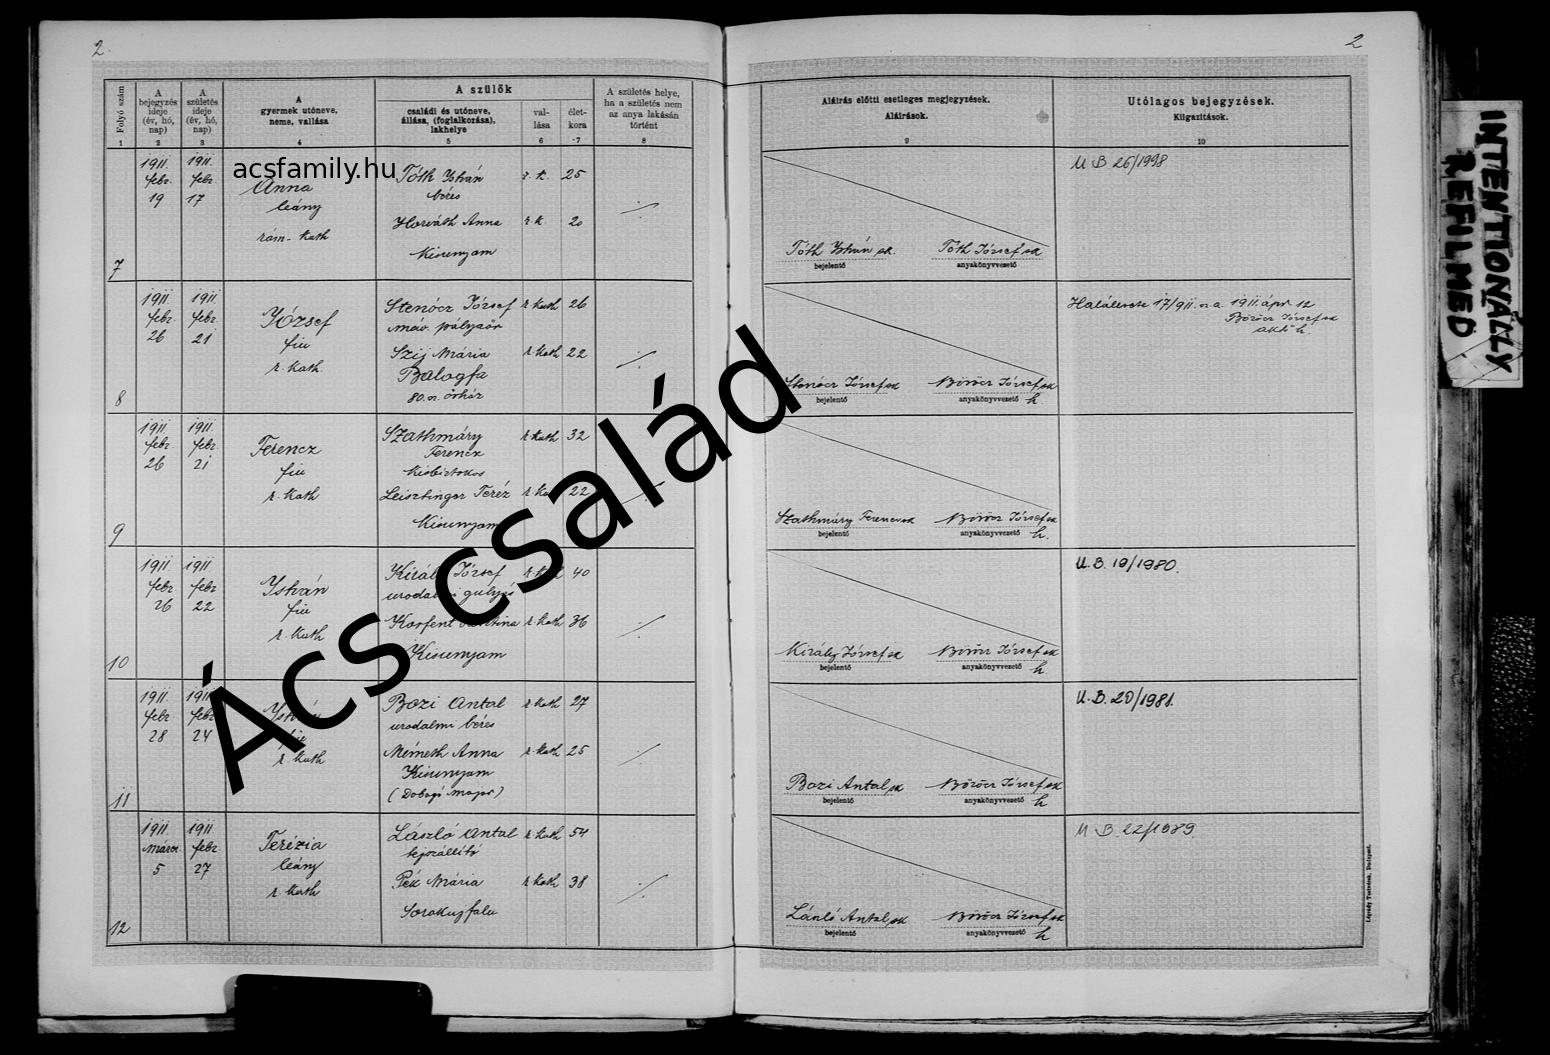 2.
2
Folyó szám
A bejegyzés ideje (év, hó, nap)
A születés ideje (év, hó, nap)
A gyermek utóneve, neme, vallása
A szülők
családi és utóneve, állása, (foglalkozása), lakhelye
val-lása
élet-kora
A születés helye, ha a születés nem az anya lakásán történt
Aláírás előtti esetleges megjegyzések.
Aláírások.
Utólagos bejegyzések.
Kiigazítások.
1 2 3 4 5 6 7 8 9 10
acsfamily.hu
Ács család
7
1911. febr. 19
1911. febr. 17
Anna
leány
róm. kath
Tóth István r. k. 25
béres
Horváth Anna r k 20
Kisunyom
Tóth István sk.
Tóth József sk
bejelentő
anyakönyvvezető
U B 26/1998
8
1911. febr. 26
1911. febr. 21
József
fiu
r. kath.
József r kath 26
máv. pályaőr
Szij Mária r kath 22
Balogfa
80. sz. őrház
József sk
Böröcz József sk
h
bejelentő
anyakönyvvezető
Haláleset 17/911. sz a. 1911. ápr 12
Böröcz József sk
h.
9
1911. febr 26
1911. febr 21
Ferencz
fiu
r. kath
Szathmáry r kath 32
Ferencz
Kisbirtokos
Leisztinger Teréz 22
Kisunyom
Szathmáry Ferencz sk
Böröcz József sk
h.
bejelentő
anyakönyvvezető
10
1911. febr 26
1911 febr 22
István
fiu
r. kath
Király József 40
uradalmi gulyás
r kath 36
Kisunyom
Király József sk
Böröcz József sk
h.
bejelentő
anyakönyvvezető
U. B. 19/1980.
11
1911. febr 28
1911 febr 24
István
fiu
r. kath
Bozi Antal r kath 27
uradalmi béres
Németh Anna r kath 25
Kisunyom
Bozi Antal sk
Böröcz József sk
h
bejelentő
anyakönyvvezető
U. B. 20/1981.
12
1911. márcz 5
1911. febr 27
Terézia
leány
r. kath
László Antal r kath 54
tejszállító
Pék Mária r kath 38
Sorokujfalu
László Antal sk
Böröcz József sk
h
bejelentő
anyakönyvvezető
U B. 22/1989.
Légrády Testvérek, Budapest.
INTENTIONALLY
REFILMED